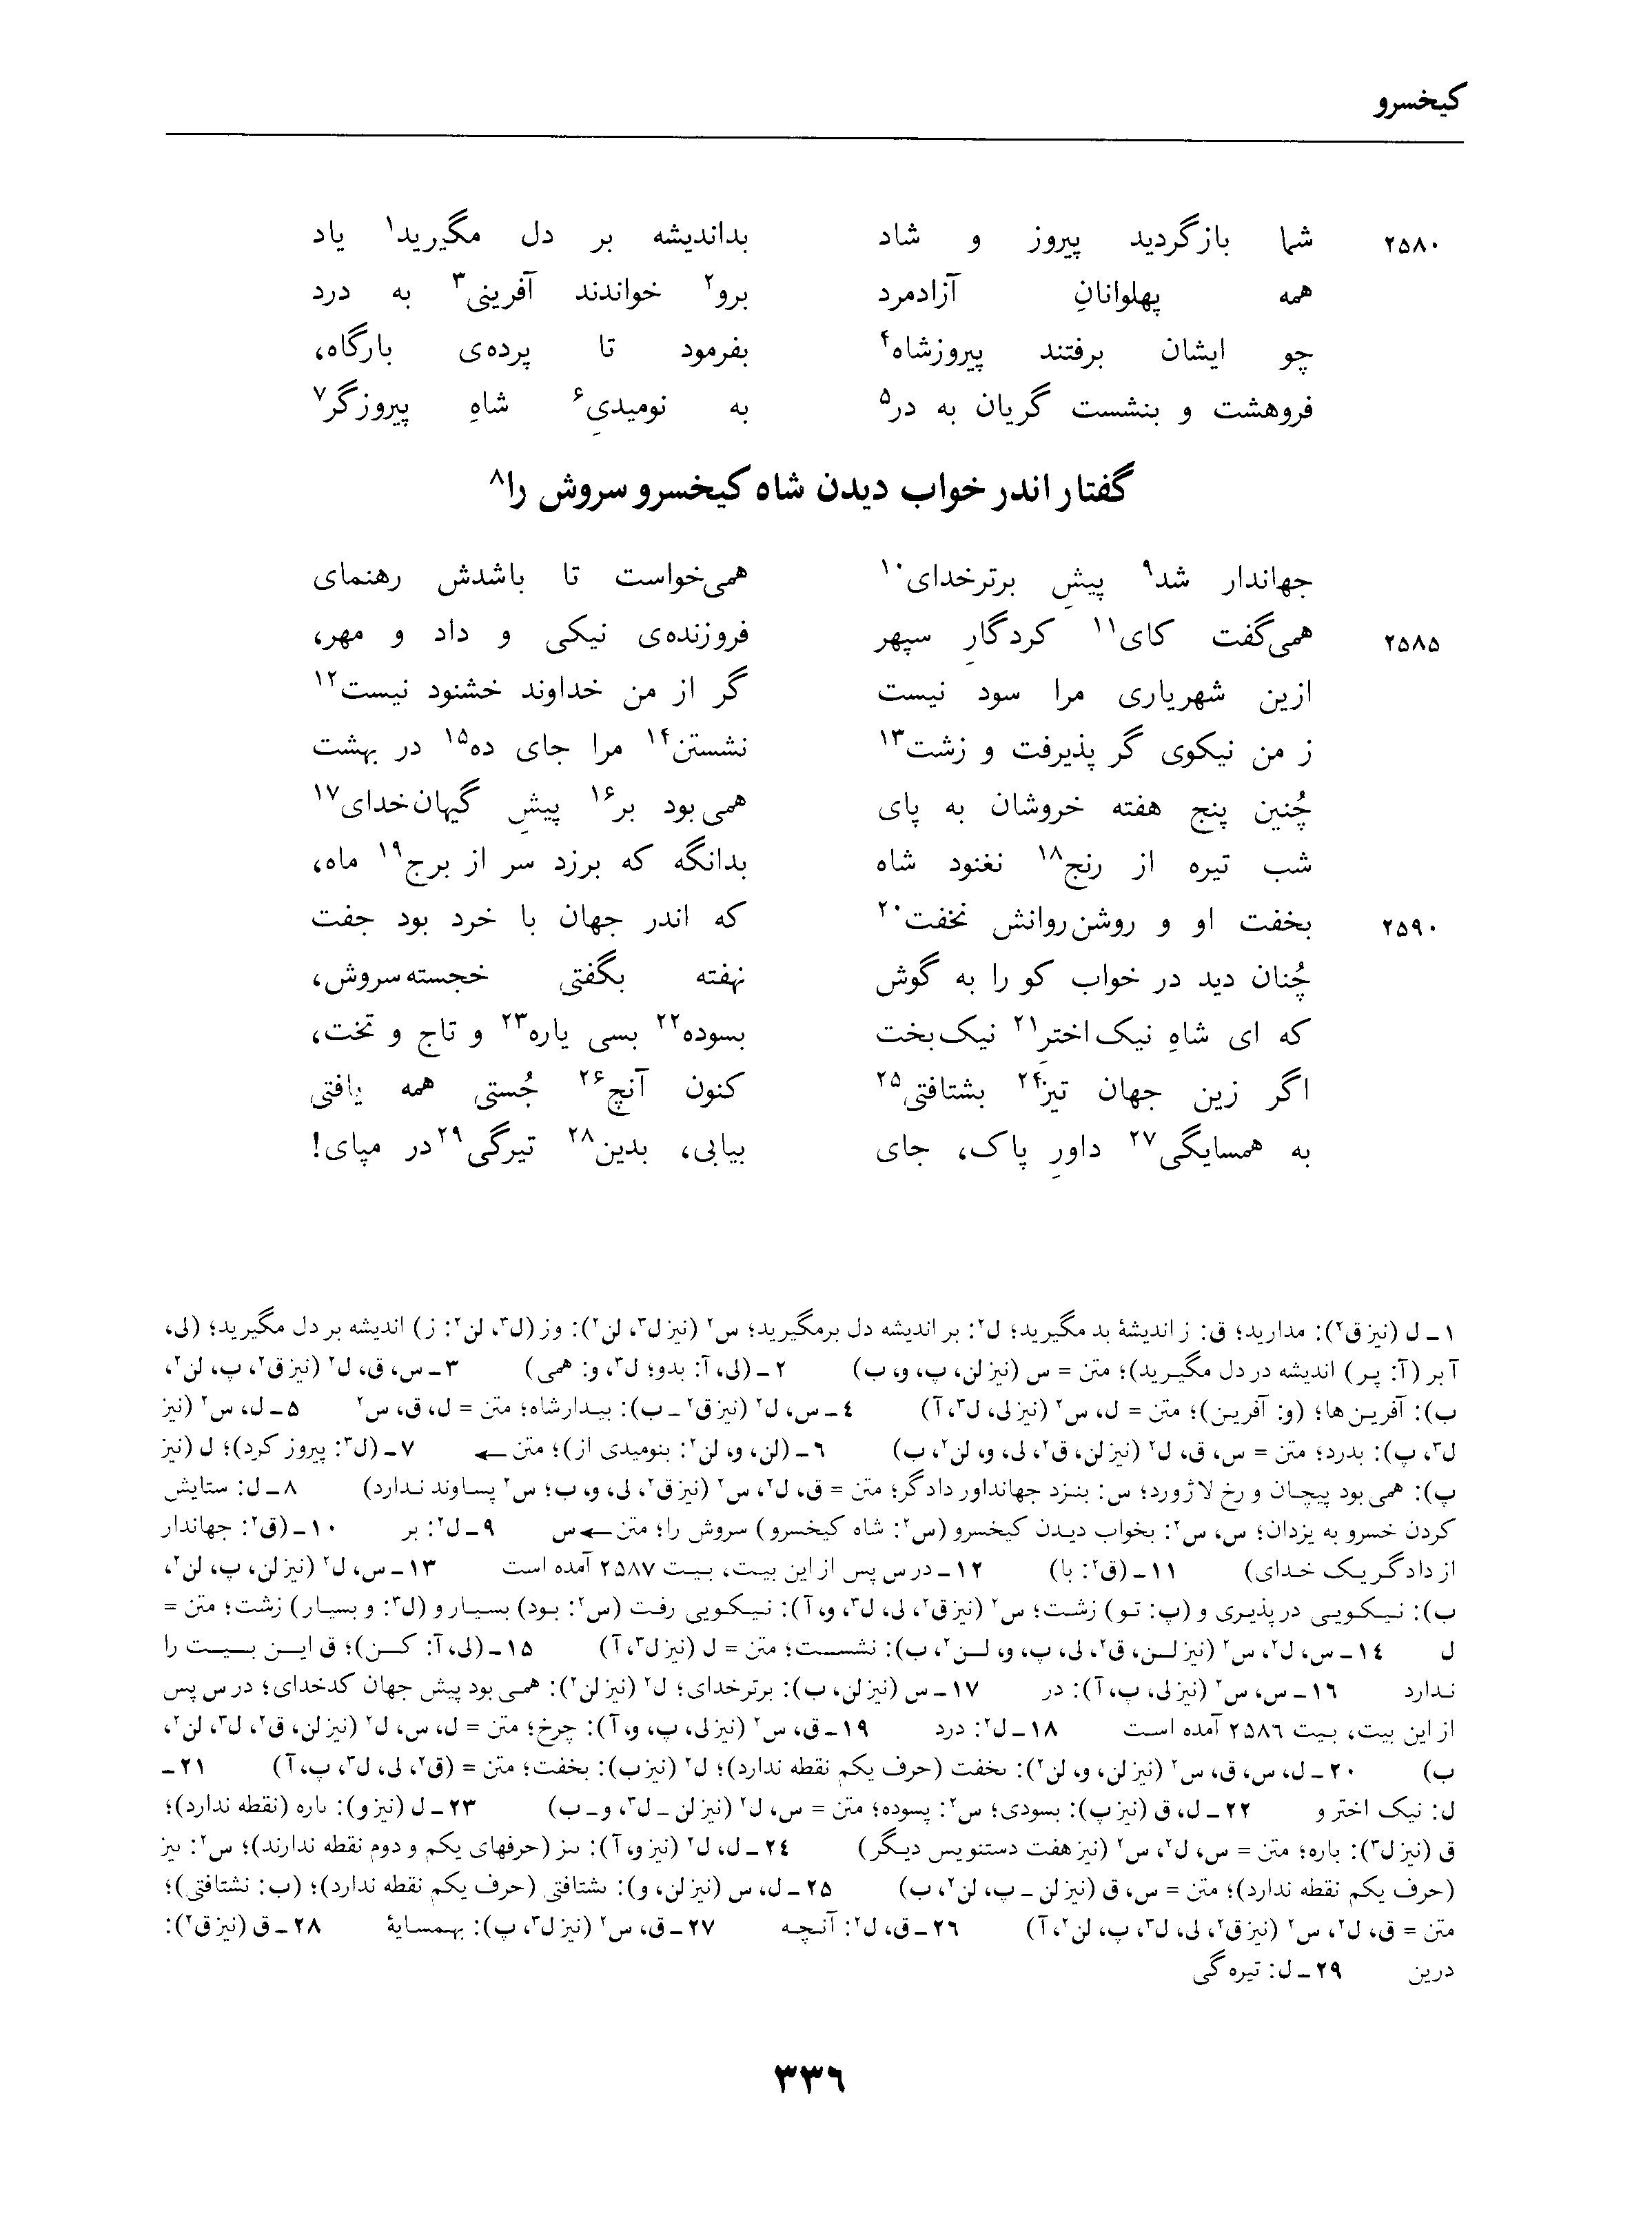 کیخسرو
۲۵۸۰ شما بازگردید پیروز و شاد بداندیشه بر دل مگیرید۱ یاد
همه پهلوانانِ آزادمرد برو۲ خواندند آفرینی۳ به درد
چو ایشان برفتند پیروزشاه۴ بفرمود تا پرده‌ی بارگاه،
فروهشت و بنشست گریان به در۵ به نومیدیِ۶ شاهِ پیروزگر۷
گفتار اندر خواب دیدن شاه کیخسرو سروش را۸
جهاندار شد۹ پیشِ برترخدای۱۰ همی‌خواست تا باشدش رهنمای
۲۵۸۵ همی‌گفت کای۱۱ کردگارِ سپهر فروزنده‌ی نیکی و داد و مهر،
ازین شهریاری مرا سود نیست گر از من خداوند خشنود نیست۱۲
ز من نیکوی گر پذیرفت و زشت۱۳ نشستن۱۴ مرا جای ده۱۵ در بهشت
چُنین پنج هفته خروشان به پای همی‌بود بر۱۶ پیشِ گیهان‌خدای۱۷
شب تیره از رنج۱۸ نغنود شاه بدانگه که برزد سر از برج۱۹ ماه،
۲۵۹۰ بخفت او و روشن‌روانش نخفت۲۰ که اندر جهان با خرد بود جفت
چُنان دید در خواب کو را به گوش نهفته بگفتی خجسته‌سروش،
که ای شاهِ نیک‌اخترِ۲۱ نیک‌بخت بسوده۲۲ بسی یاره۲۳ و تاج و تخت،
اگر زین جهان تیز۲۴ بشتافتی۲۵ کنون آنچ۲۶ جُستی همه یافتی
به همسایگی۲۷ داورِ پاک، جای بیابی، بدین۲۸ تیرگی۲۹ در مپای!
۱ـ ل (نیز ق۲): مدارید؛ ق: ز اندیشهٔ بد مگیرید؛ ل۲: بر اندیشه دل برمگیرید؛ س۲ (نیز ل۳، لن۲): وز (ل۳، لن۲: ز) اندیشه بر دل مگیرید؛ (لی،
آ بر (آ: پر) اندیشه در دل مگیرید)؛ متن = س (نیز لن، پ، و، ب) ۲ـ (لی، آ: بدو؛ ل۳، و: همی) ۳ـ س، ق، ل۲ (نیز ق۲، پ، لن۲،
ب): آفرین‌ها؛ (و: آفرین)؛ متن = ل، س۲ (نیز لی، ل۳، آ) ۴ـ س، ل۲ (نیز ق۲ ـ ب): بیدارشاه؛ متن = ل، ق، س۲ ۵ـ ل، س۲ (نیز
ل۳، پ): بدرد؛ متن = س، ق، ل۲ (نیز لن، ق۲، لی، و، لن۲، ب) ۶ـ (لن، و، لن۲: بنومیدی از)؛ متن ← ۷ـ (ل۳: پیروز کرد)؛ ل (نیز
پ): همی بود پیچان و رخ لاژورد؛ س: بنزد جهانداور دادگر؛ متن = ق، ل۲، س۲ (نیز ق۲، لی، و، ب؛ س۲ پساوند ندارد) ۸ـ ل: ستایش
کردن خسرو به یزدان؛ س، س۲: بخواب دیدن کیخسرو (س۲: شاه کیخسرو) سروش را؛ متن ← س ۹ـ ل۲: بر ۱۰ـ (ق۲: جهاندار
از دادگر یک خدای) ۱۱ـ (ق۲: با) ۱۲ـ در س پس از این بیت، بیت ۲۵۸۷ آمده است ۱۳ـ س، ل۲ (نیز لن، پ، لن۲،
ب): نیکویی در پذیری و (پ: تو) زشت؛ س۲ (نیز ق۲، لی، ل۳، و، آ): نیکویی رفت (س۲: بود) بسیار و (ل۳: و بسیار) زشت؛ متن =
ل ۱۴ـ س، ل۲، س۲ (نیز لن، ق۲، لی، پ، و، لن۲، ب): نشست؛ متن = ل (نیز ل۳، آ) ۱۵ـ (لی، آ: کن)؛ ق این بیت را
ندارد ۱۶ـ س، س۲ (نیز لی، پ، آ): در ۱۷ـ س (نیز لن، ب): برترخدای؛ ل۲ (نیز لن۲): همی بود پیش جهان کدخدای؛ در س پس
از این بیت، بیت ۲۵۸۶ آمده است ۱۸ـ ل۲: درد ۱۹ـ ق، س۲ (نیز لی، پ، و، آ): چرخ؛ متن = ل، س، ل۲ (نیز لن، ق۲، ل۳، لن۲،
ب) ۲۰ـ ل، س، ق، س۲ (نیز لن، و، لن۲): ںخفت (حرف یکم نقطه ندارد)؛ ل۲ (نیز ب): بخفت؛ متن = (ق۲، لی، ل۳، پ، آ) ۲۱ـ
ل: نیک اختر و ۲۲ـ ل، ق (نیز پ): بسودی؛ س۲: پسوده؛ متن = س، ل۲ (نیز لن ـ ل۳، و ـ ب) ۲۳ـ ل (نیز و): ںاره (نقطه ندارد)؛
ق (نیز ل۳): باره؛ متن = س، ل۲، س۲ (نیز هفت دستنویس دیگر) ۲۴ـ ل، ل۲ (نیز و، آ): ںںز (حرفهای یکم و دوم نقطه ندارند)؛ س۲: ںیز
(حرف یکم نقطه ندارد)؛ متن = س، ق (نیز لن ـ پ، لن۲، ب) ۲۵ـ ل، س (نیز لن، و): ںشتافتی (حرف یکم نقطه ندارد)؛ (ب: نشتافتی)؛
متن = ق، ل۲، س۲ (نیز ق۲، لی، ل۳، پ، لن۲، آ) ۲۶ـ ق، ل۲: آنچه ۲۷ـ ق، س۲ (نیز ل۳، پ): بهمسایهٔ ۲۸ـ ق (نیز ق۲):
درین ۲۹ـ ل: تیره گی
۳۳۶